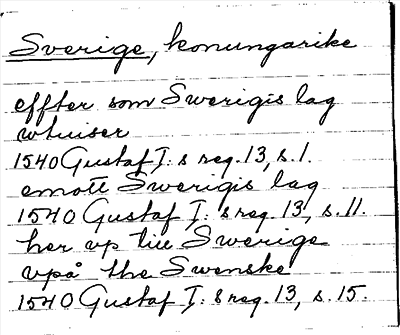 Sverige, konungarike
effter som Swerigis lag
uthuiser
1540 Gustaf I: s reg. 13, s. 1.
emott Swerigis lag
1540 Gustaf I: s reg. 13, s. 11.
her vp till Swerige
vpå the Swenske
1540 Gustaf I: s reg. 13, s. 15.